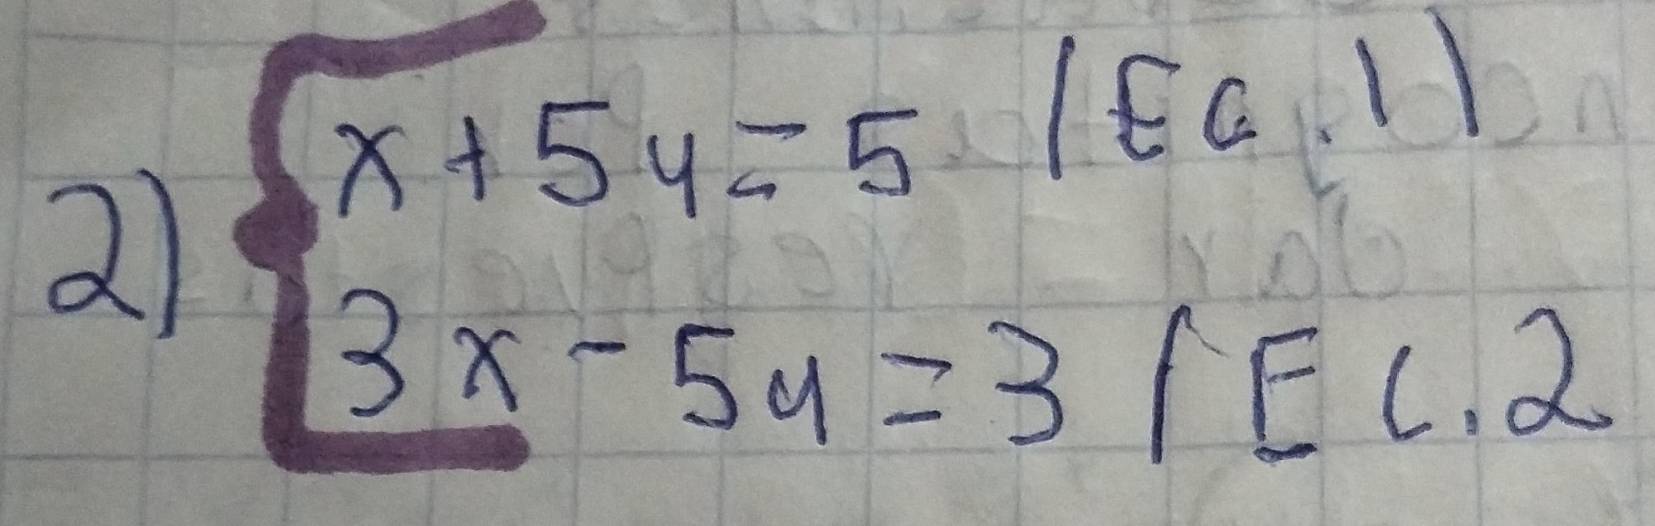 2) x + 5y = 5 (Ec. 1)
3x - 5y = 3 (Ec. 2